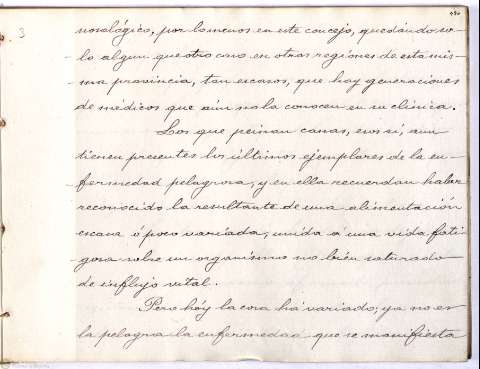 3
nosológico, por lo menos en este concejo, quedándo so-
lo algun que otro caso en otras regiones de esta mis-
ma provincia, tan escasos, que hay generaciones
de médicos que aún no la conocen en su clínica.
Los que peinan canas, esos sí, aun
tienen presentes los últimos ejemplares de la en-
fermedad pelagrosa, y en ella recuerdan haber
reconocido la resultante de una alimentación
escasa ó poco variada, unida á una vida fati-
gosa sobre un organísmo no bién saturado
de influjo vital.
Pero hóy la cosa há variado; ya no es
la pelagra la enfermedad que se manifiesta